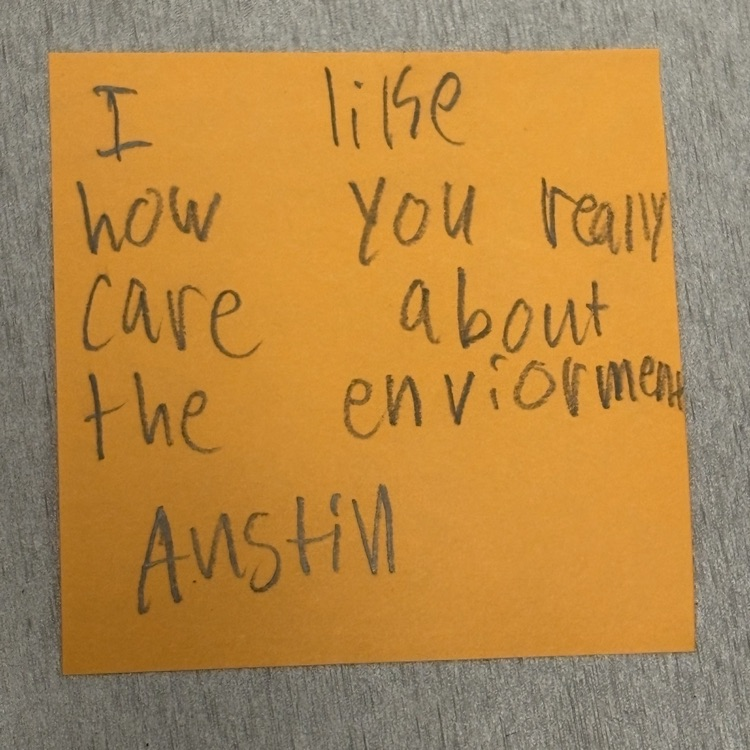 I like
how you really
care about
the enviorment
Austin